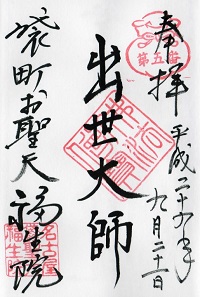 奉拝
第五番
平成二十六年
九月二十一日
出世大師
袋町お聖天
福生院
名古屋
福生院